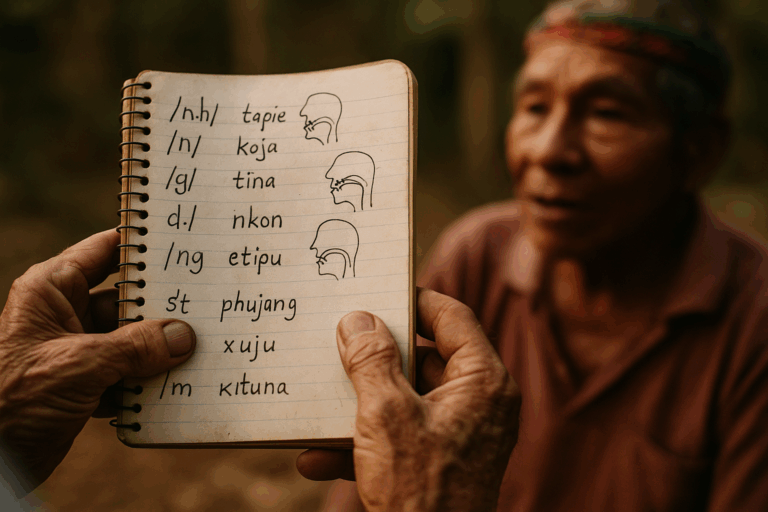 /n.h/ tapie
/n/ koja
/g/ tina
d./ nkon
/ng etipu
s't phujang
xuju
/m kituna